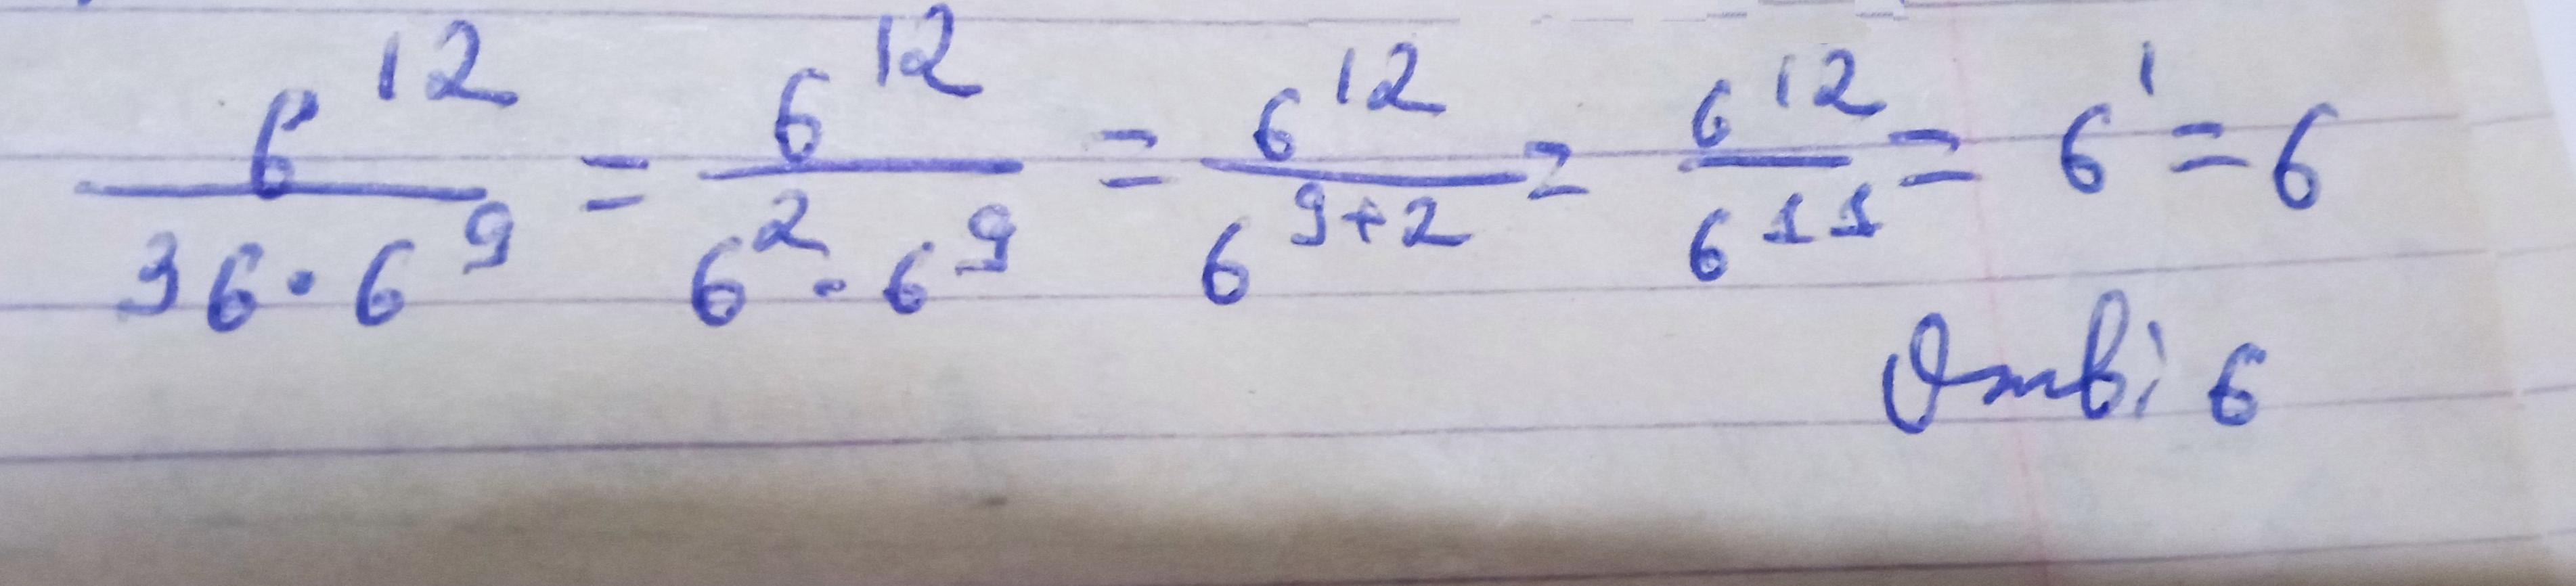 6^12 / 36 · 6^9 = 6^12 / 6^2 · 6^9 = 6^12 / 6^9+2 = 6^12 / 6^11 = 6^1 = 6
6